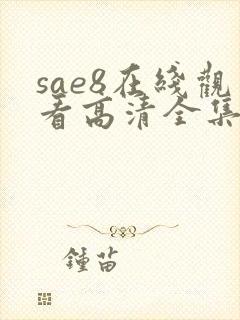 sae8在綫觀
看高清全集
鍾苗